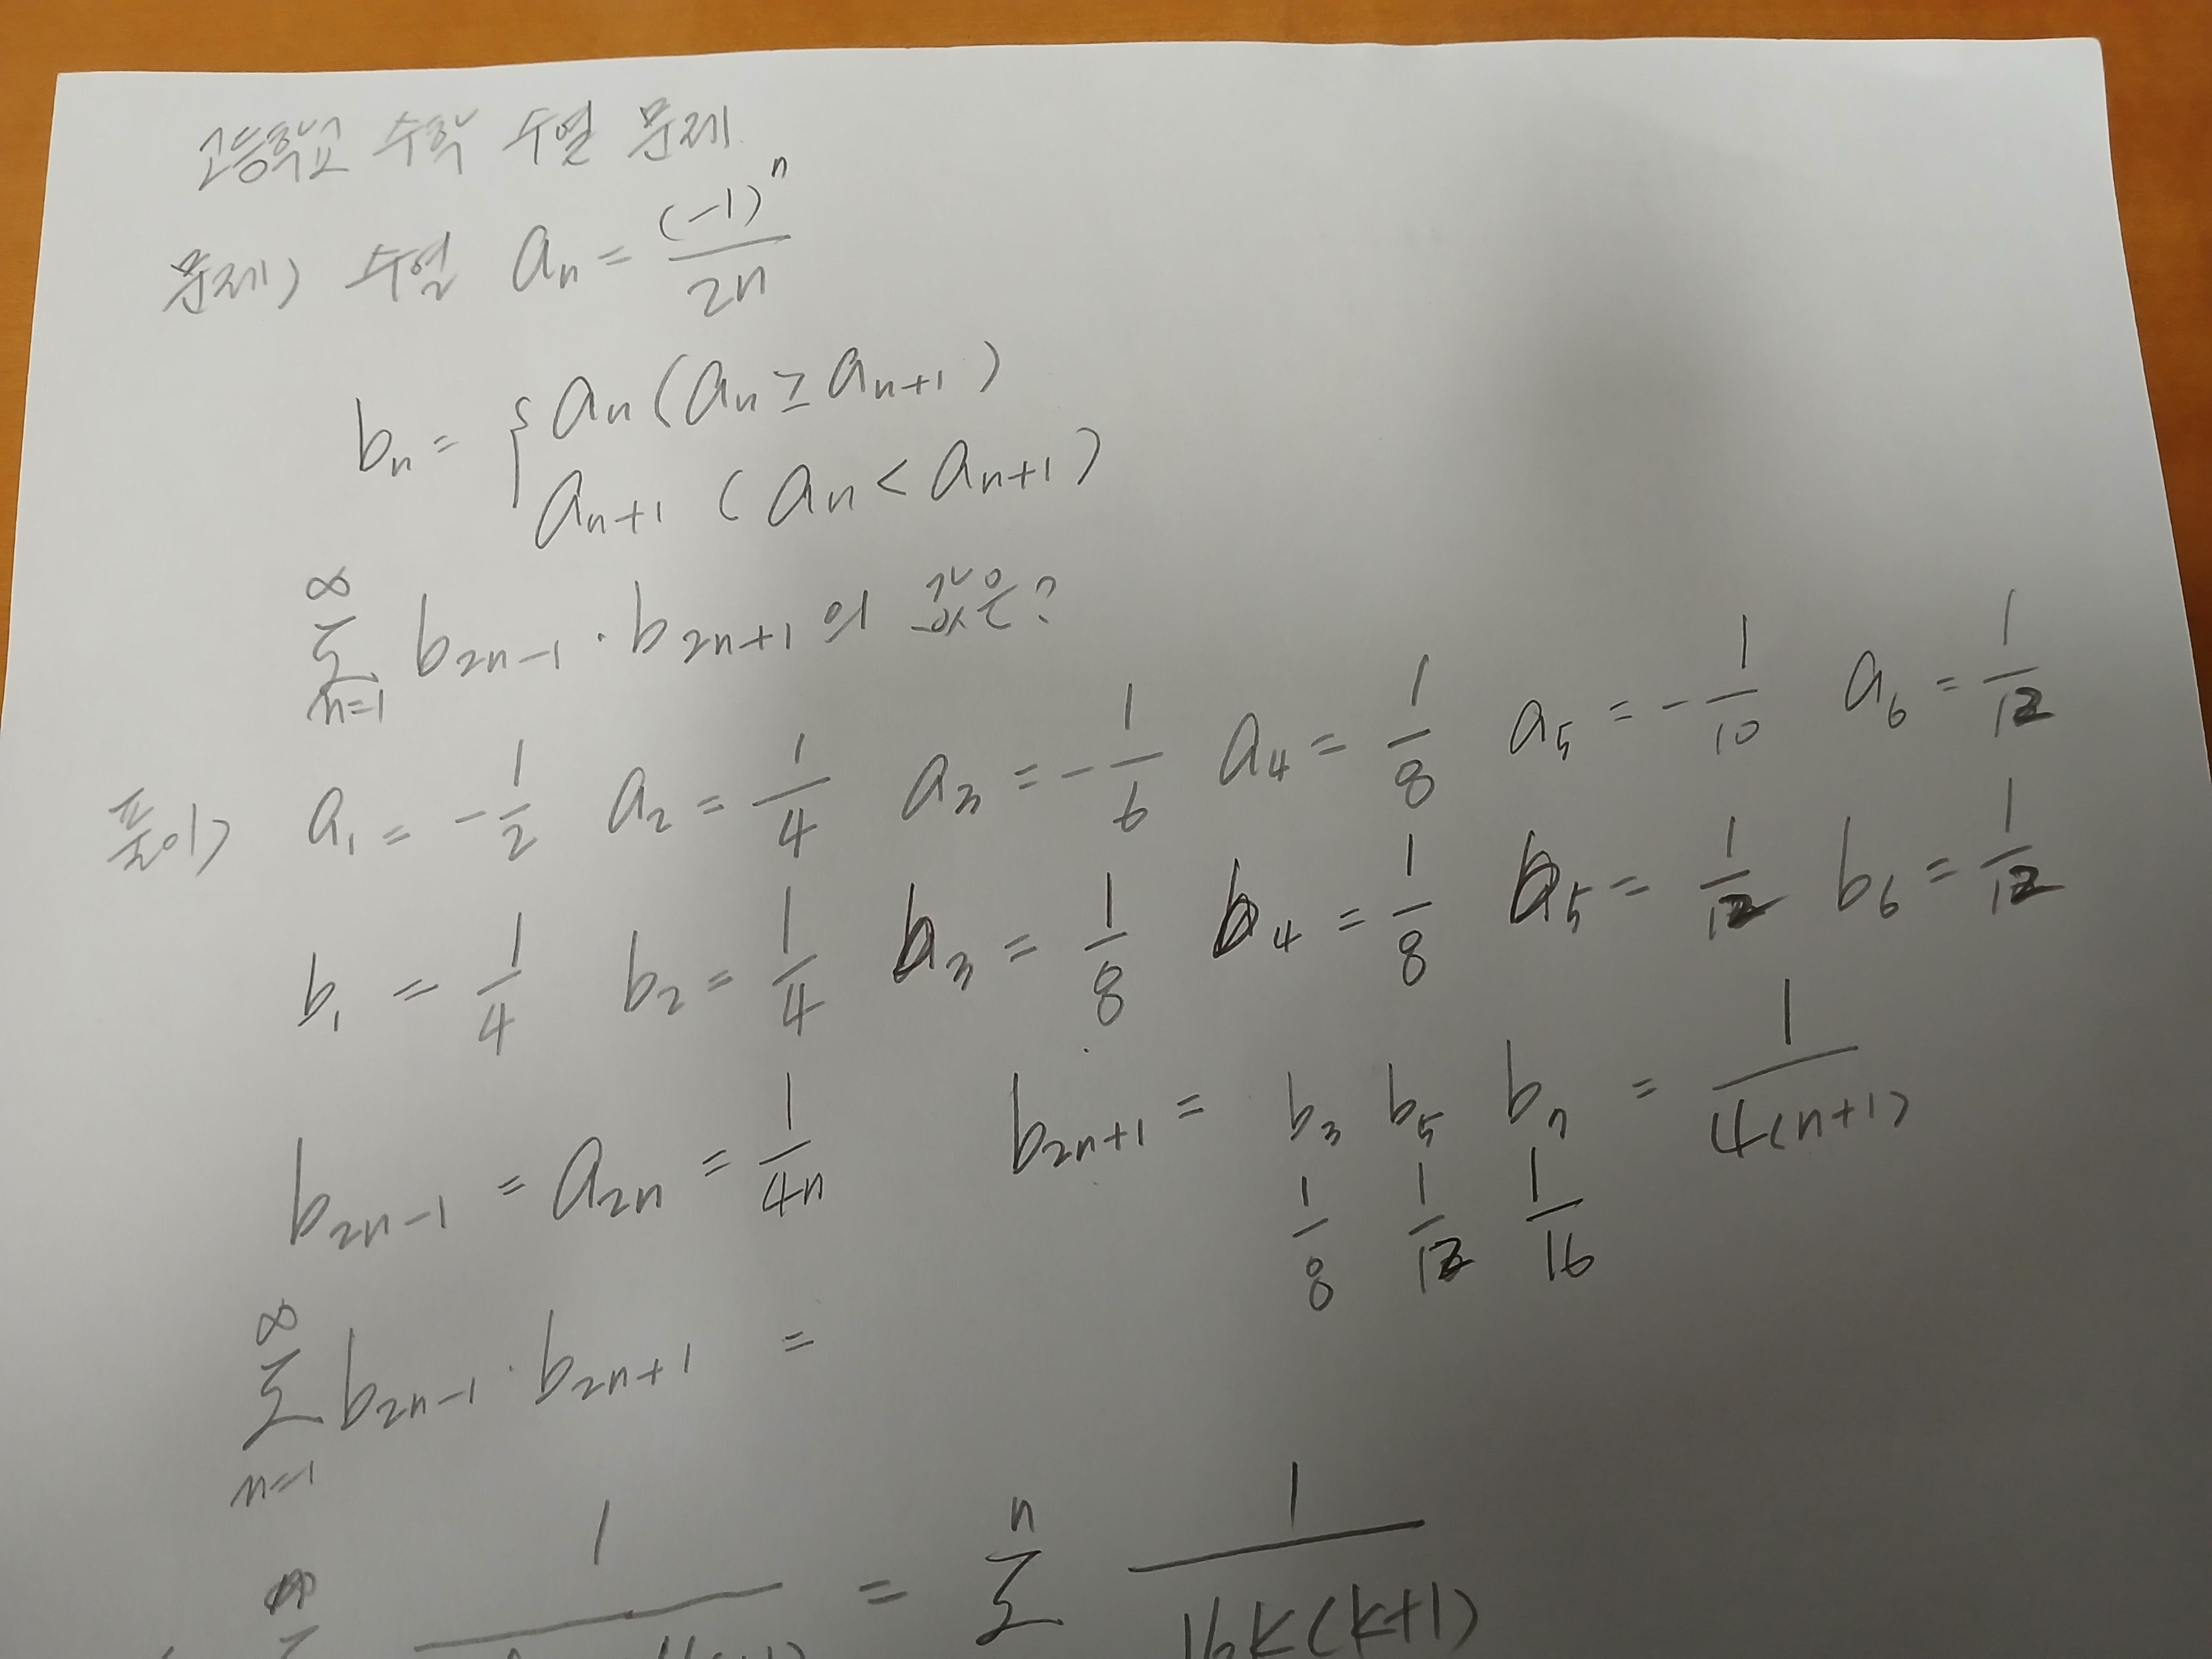 고등학교 수학 수열 문제.
문제) 수열 aₙ = (-1)ⁿ / 2n
bₙ = { aₙ (aₙ ≥ aₙ₊₁)
aₙ₊₁ (aₙ < aₙ₊₁)
∞
Σ b₂ₙ₋₁ · b₂ₙ₊₁ 의 값은?
n=1
풀이) a₁ = -1/2 a₂ = 1/4 a₃ = -1/6 a₄ = 1/8 a₅ = -1/10 a₆ = 1/12
b₁ = 1/4 b₂ = 1/4 b₃ = 1/8 b₄ = 1/8 b₅ = 1/12 b₆ = 1/12
b₂ₙ₋₁ = a₂ₙ = 1/4n b₂ₙ₊₁ = b₃ b₅ b₇ = 1/4(n+1)
1/8 1/12 1/16
∞
Σ b₂ₙ₋₁ · b₂ₙ₊₁ =
n=1
n
= Σ 1/16k(k+1)